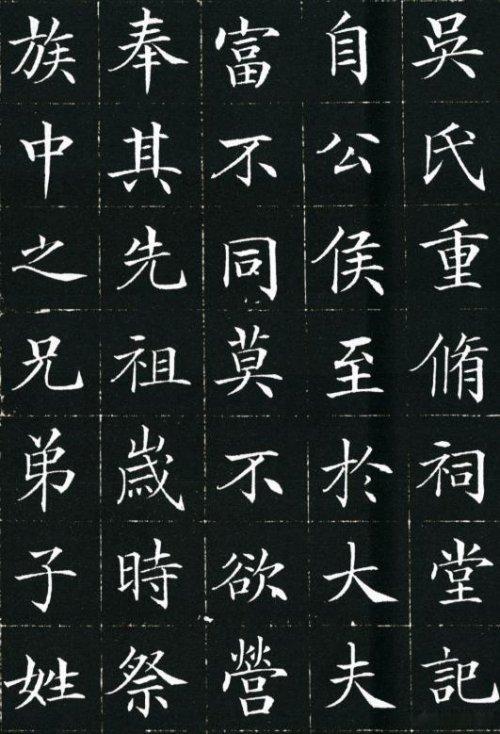 吳氏重脩祠堂記
自公侯至於大夫
富不同莫不欲營
奉其先祖歲時祭
族中之兄弟子姓